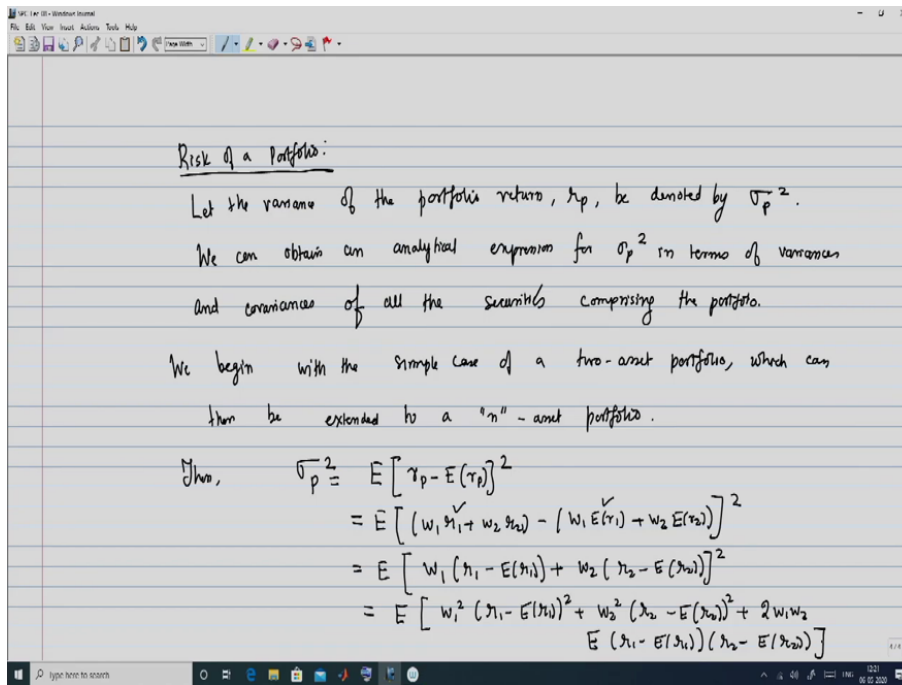 SPC Lec 08 - Windows Journal
File Edit View Insert Actions Tools Help
Page Width
Risk of a Portfolio:
Let the variance of the portfolio return, r_p, be denoted by σ_p².
We can obtain an analytical expression for σ_p² in terms of variances
and covariances of all the securities comprising the portfolio.
We begin with the simple case of a two-asset portfolio, which can
then be extended to a "n" - asset portfolio.
Thus, σ_p² = E[r_p - E(r_p)]²
= E[(w₁r₁ + w₂r₂) - (w₁E(r₁) + w₂E(r₂))]²
= E[w₁(r₁ - E(r₁)) + w₂(r₂ - E(r₂))]²
= E[w₁²(r₁ - E(r₁))² + w₂²(r₂ - E(r₂))² + 2w₁w₂
E(r₁ - E(r₁))(r₂ - E(r₂))]
Type here to search
ENG
12:21
06-05-2020